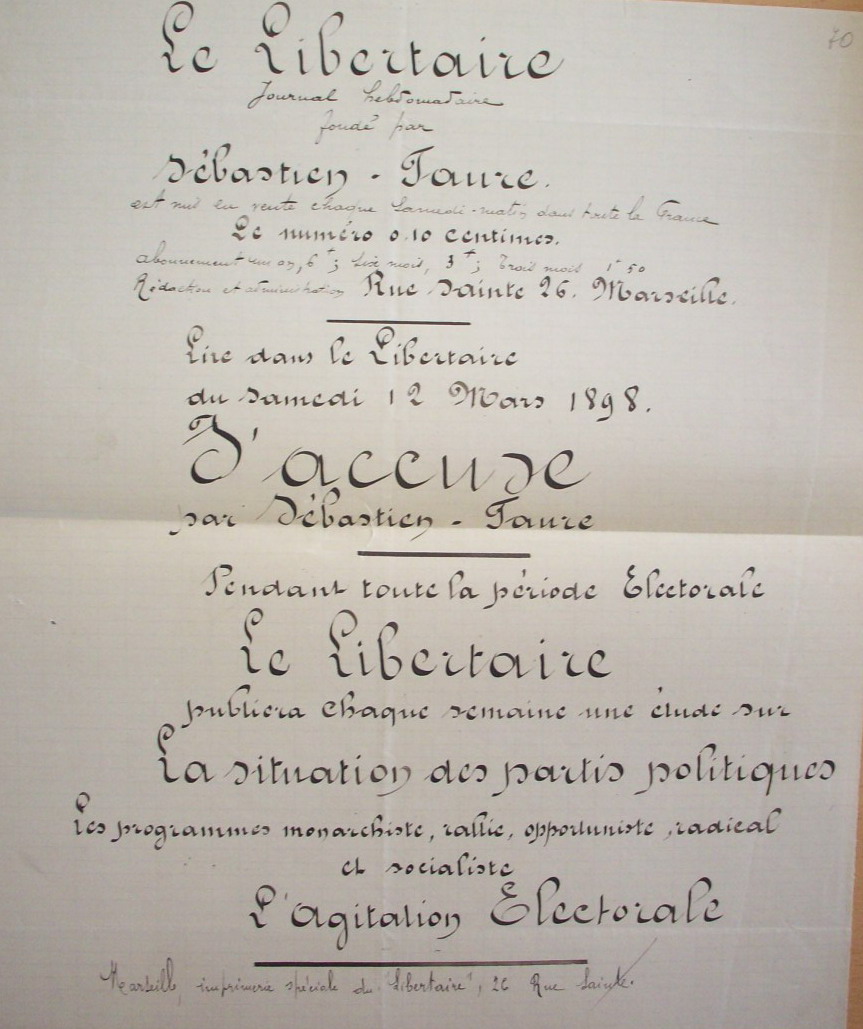 70
Le Libertaire
Journal hebdomadaire
fondé par
Sébastien - Faure.
est mis en vente chaque Samedi-matin dans toute la France
Le numéro 0.10 centimes.
abonnement un an, 6f; Six mois, 3f; Trois mois 1f 50
Rédaction et administration Rue Sainte 26. Marseille.
Lire dans le Libertaire
du Samedi 12 Mars 1898.
J'accuse
par Sébastien - Faure
Pendant toute la période Electorale
Le Libertaire
publiera chaque semaine une étude sur
La situation des partis politiques
Les programmes monarchiste, rallié, opportuniste, radical
et socialiste
L'Agitation Electorale
Marseille, imprimerie spéciale du "Libertaire", 26 Rue Sainte.